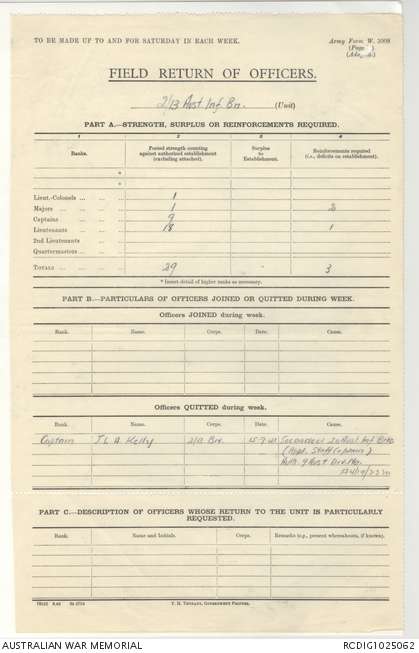 TO BE MADE UP TO AND FOR SATURDAY IN EACH WEEK.
Army Form W. 3008
FIELD RETURN OF OFFICERS.
2/13 Aust. Inf Bn. (Unit)
PART A.—STRENGTH, SURPLUS OR REINFORCEMENTS REQUIRED.
1 2 3 4
Ranks. Posted strength counting against authorized establishment (excluding attached). Surplus to Establishment. Reinforcements required (i.e., deficits on establishment).
*
*
Lieut.-Colonels ... 1
Majors ... 1 2
Captains ... 9
Lieutenants ... 18 1
2nd Lieutenants
Quartermasters ...
TOTALS ... 29 - 3
* Insert detail of higher ranks as necessary.
PART B.—PARTICULARS OF OFFICERS JOINED OR QUITTED DURING WEEK.
Officers JOINED during week.
Rank. Name. Corps. Date. Cause.
Officers QUITTED during week.
Rank. Name. Corps. Date. Cause.
Captain J. L. A. Kelly 2/13 Bn.
(Appt. Staff Captain)
Auth. 9 Aust Div.
PART C.—DESCRIPTION OF OFFICERS WHOSE RETURN TO THE UNIT IS PARTICULARLY
REQUESTED.
Rank. Name and Initials. Corps. Remarks (e.g., present whereabouts, if known).
AUSTRALIAN WAR MEMORIAL
RCDIG1025062